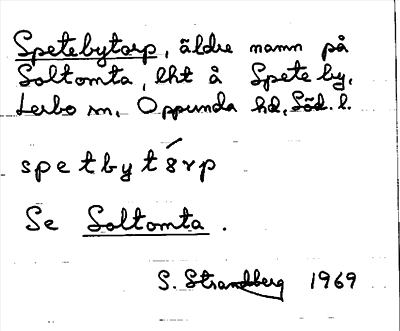 Spetebytorp, äldre namn på
Soltomta, lht å Speteby,
Lerbo sn, Oppunda hd, Söd. l.
spetbytörp
Se Soltomta.
S. Strandberg 1969